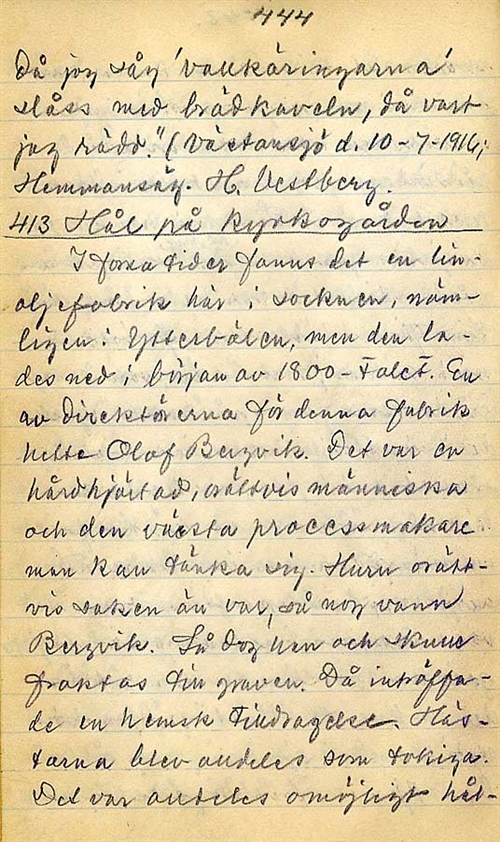 444
Då jag såg 'vallkäringarna'
slåss med brödkaveln, då vart
jag rädd." (Västansjö d. 10-7-1916;
Hemmansäg. H. Vestberg.
413 Hål på kyrkogården
I forna tider fanns det en lin-
oljefabrik här i socknen, näm-
ligen i Ytterbölen, men den la-
des ned i början av 1800-talet. En
av direktörerna för denna fabrik
hette Olof Bergvik. Det var en
hårdhjärtad, orättvis människa
och den värsta processmakare
man kan tänka sig. Huru orätt-
vis saken än var, så nog vann
Bergvik. Så dog han och skulle
fraktas till graven. Då inträffa-
de en hemsk tilldragelse. Häs-
tarna blev alldeles som tokiga.
Det var alldeles omöjligt hål-